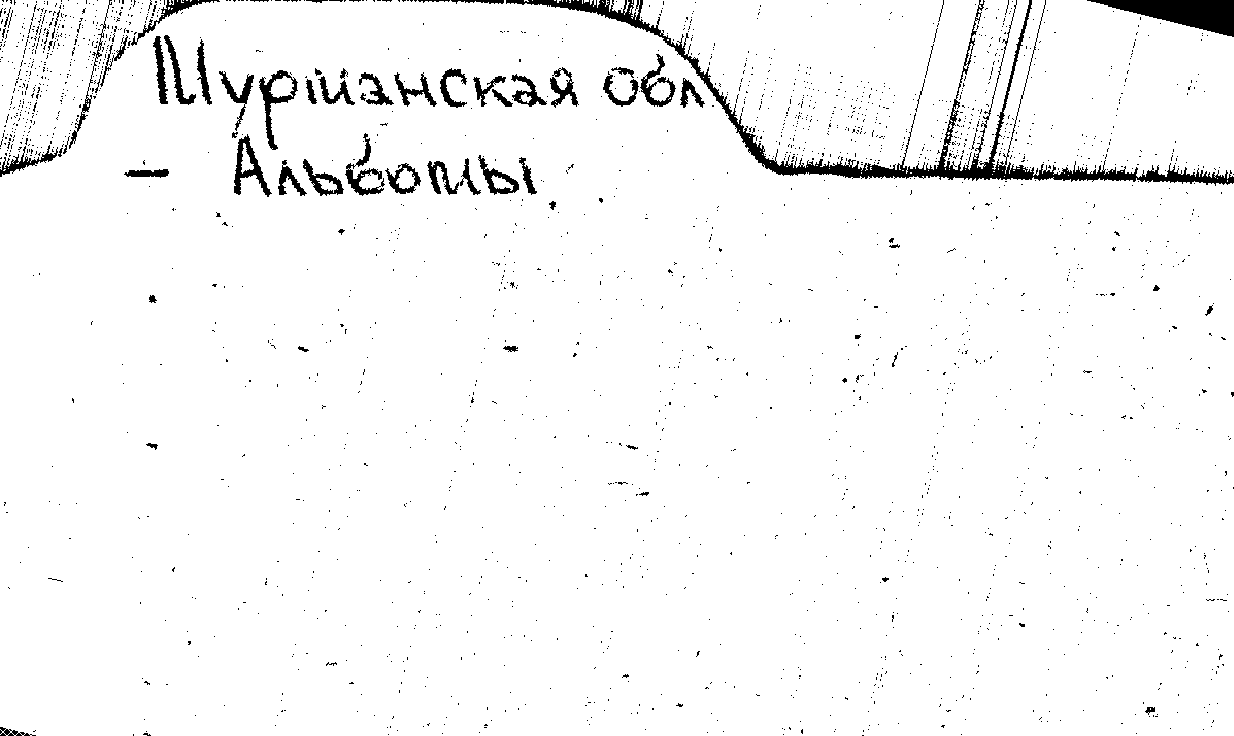 Мурманская обл
- Альбомы